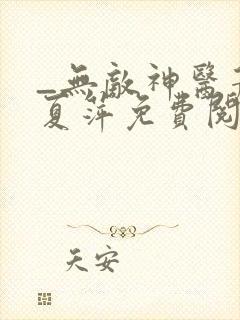 _無敵神醫
夏萍免費閱
天安